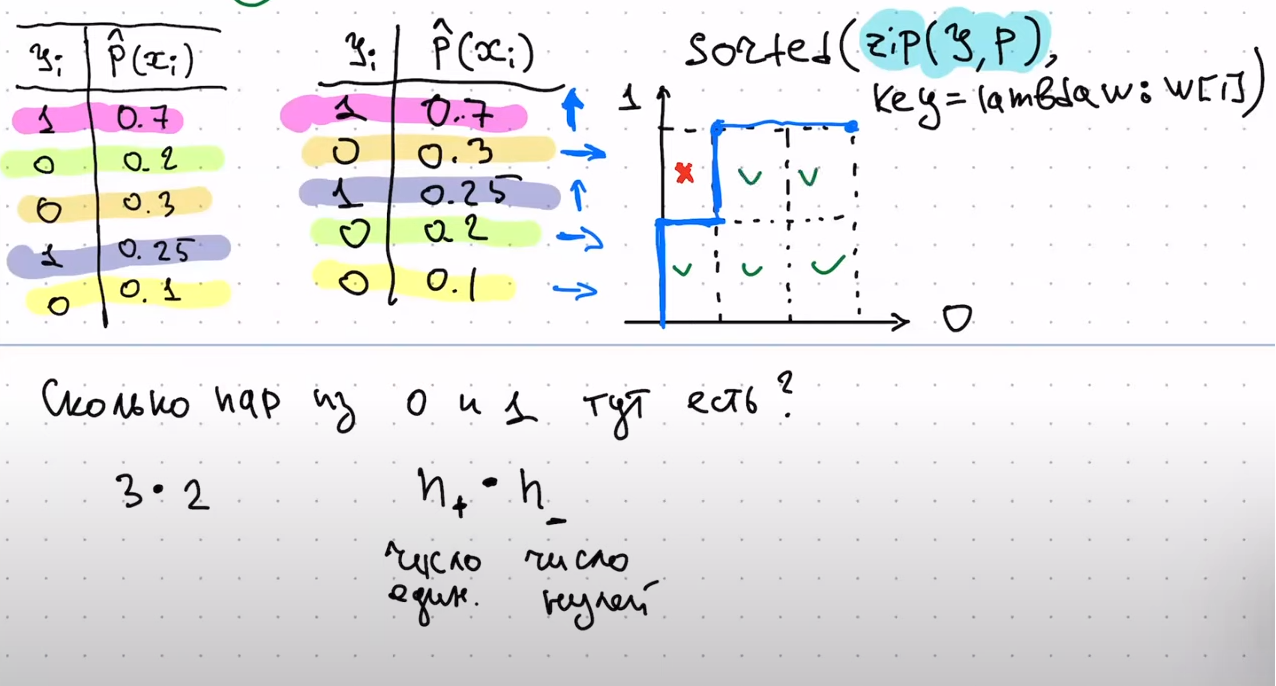 yᵢ p̂(xᵢ)
1 0.7
0 0.2
0 0.3
1 0.25
0 0.1
yᵢ p̂(xᵢ)
1 0.7
0 0.3
1 0.25
0 0.2
0 0.1
sorted(zip(y, p),
key = lambda w: w[1])
1
0
Сколько пар из 0 и 1 тут есть?
3 · 2
n₊ · n₋
число число
един. нулей